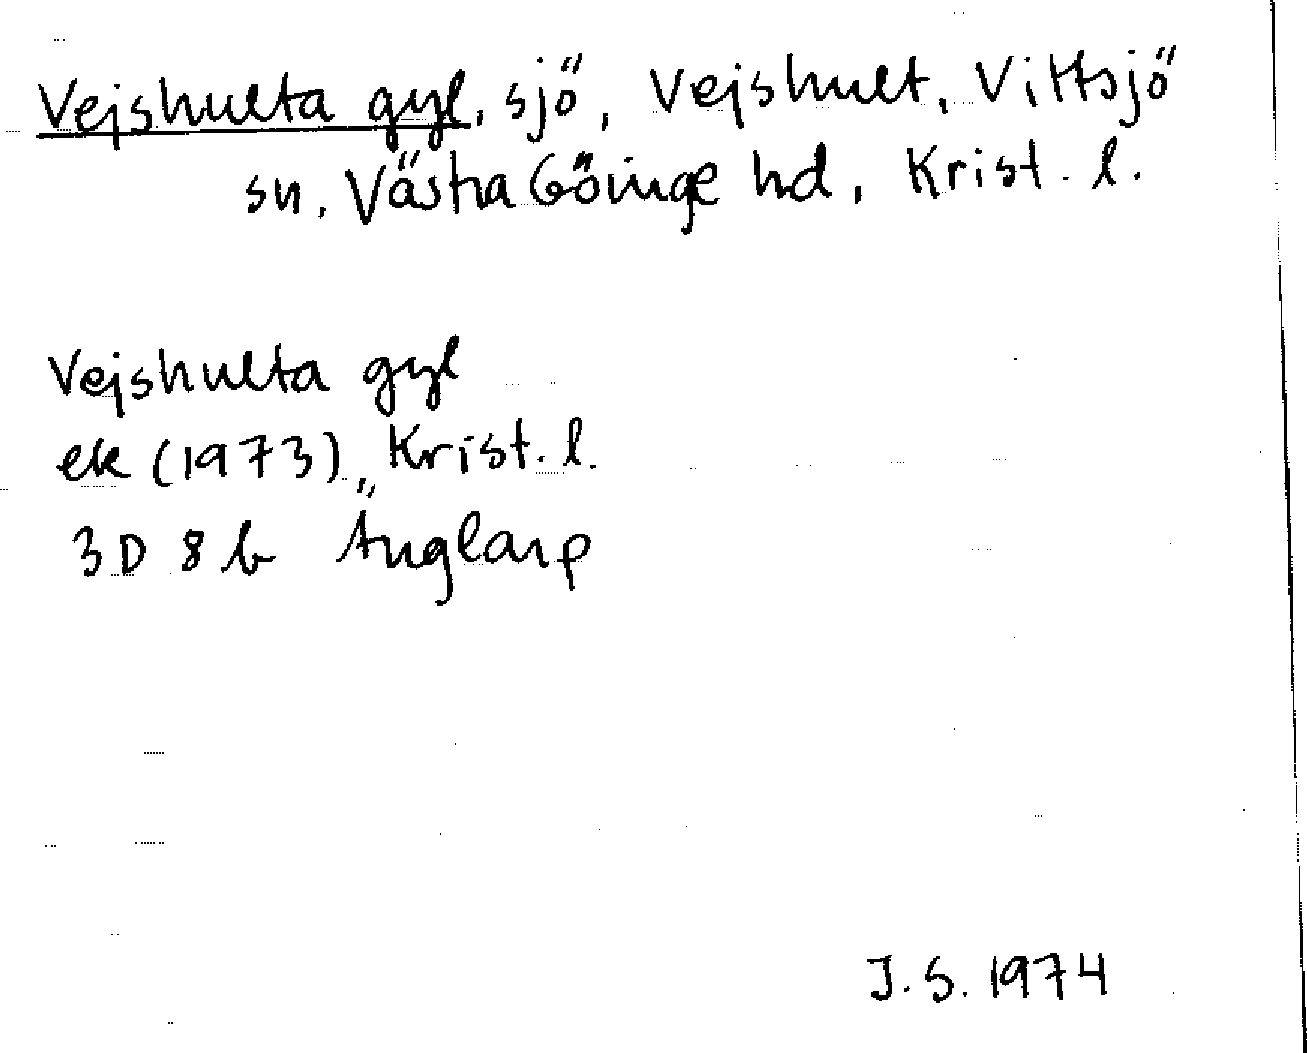 Vejshulta gyl, sjö, Vejshult, Vittsjö
sn, Västra Göinge hd, Krist. l.
Vejshulta gyl
ek (1973), Krist. l.
3D 8 b Änglarp
J.S. 1974